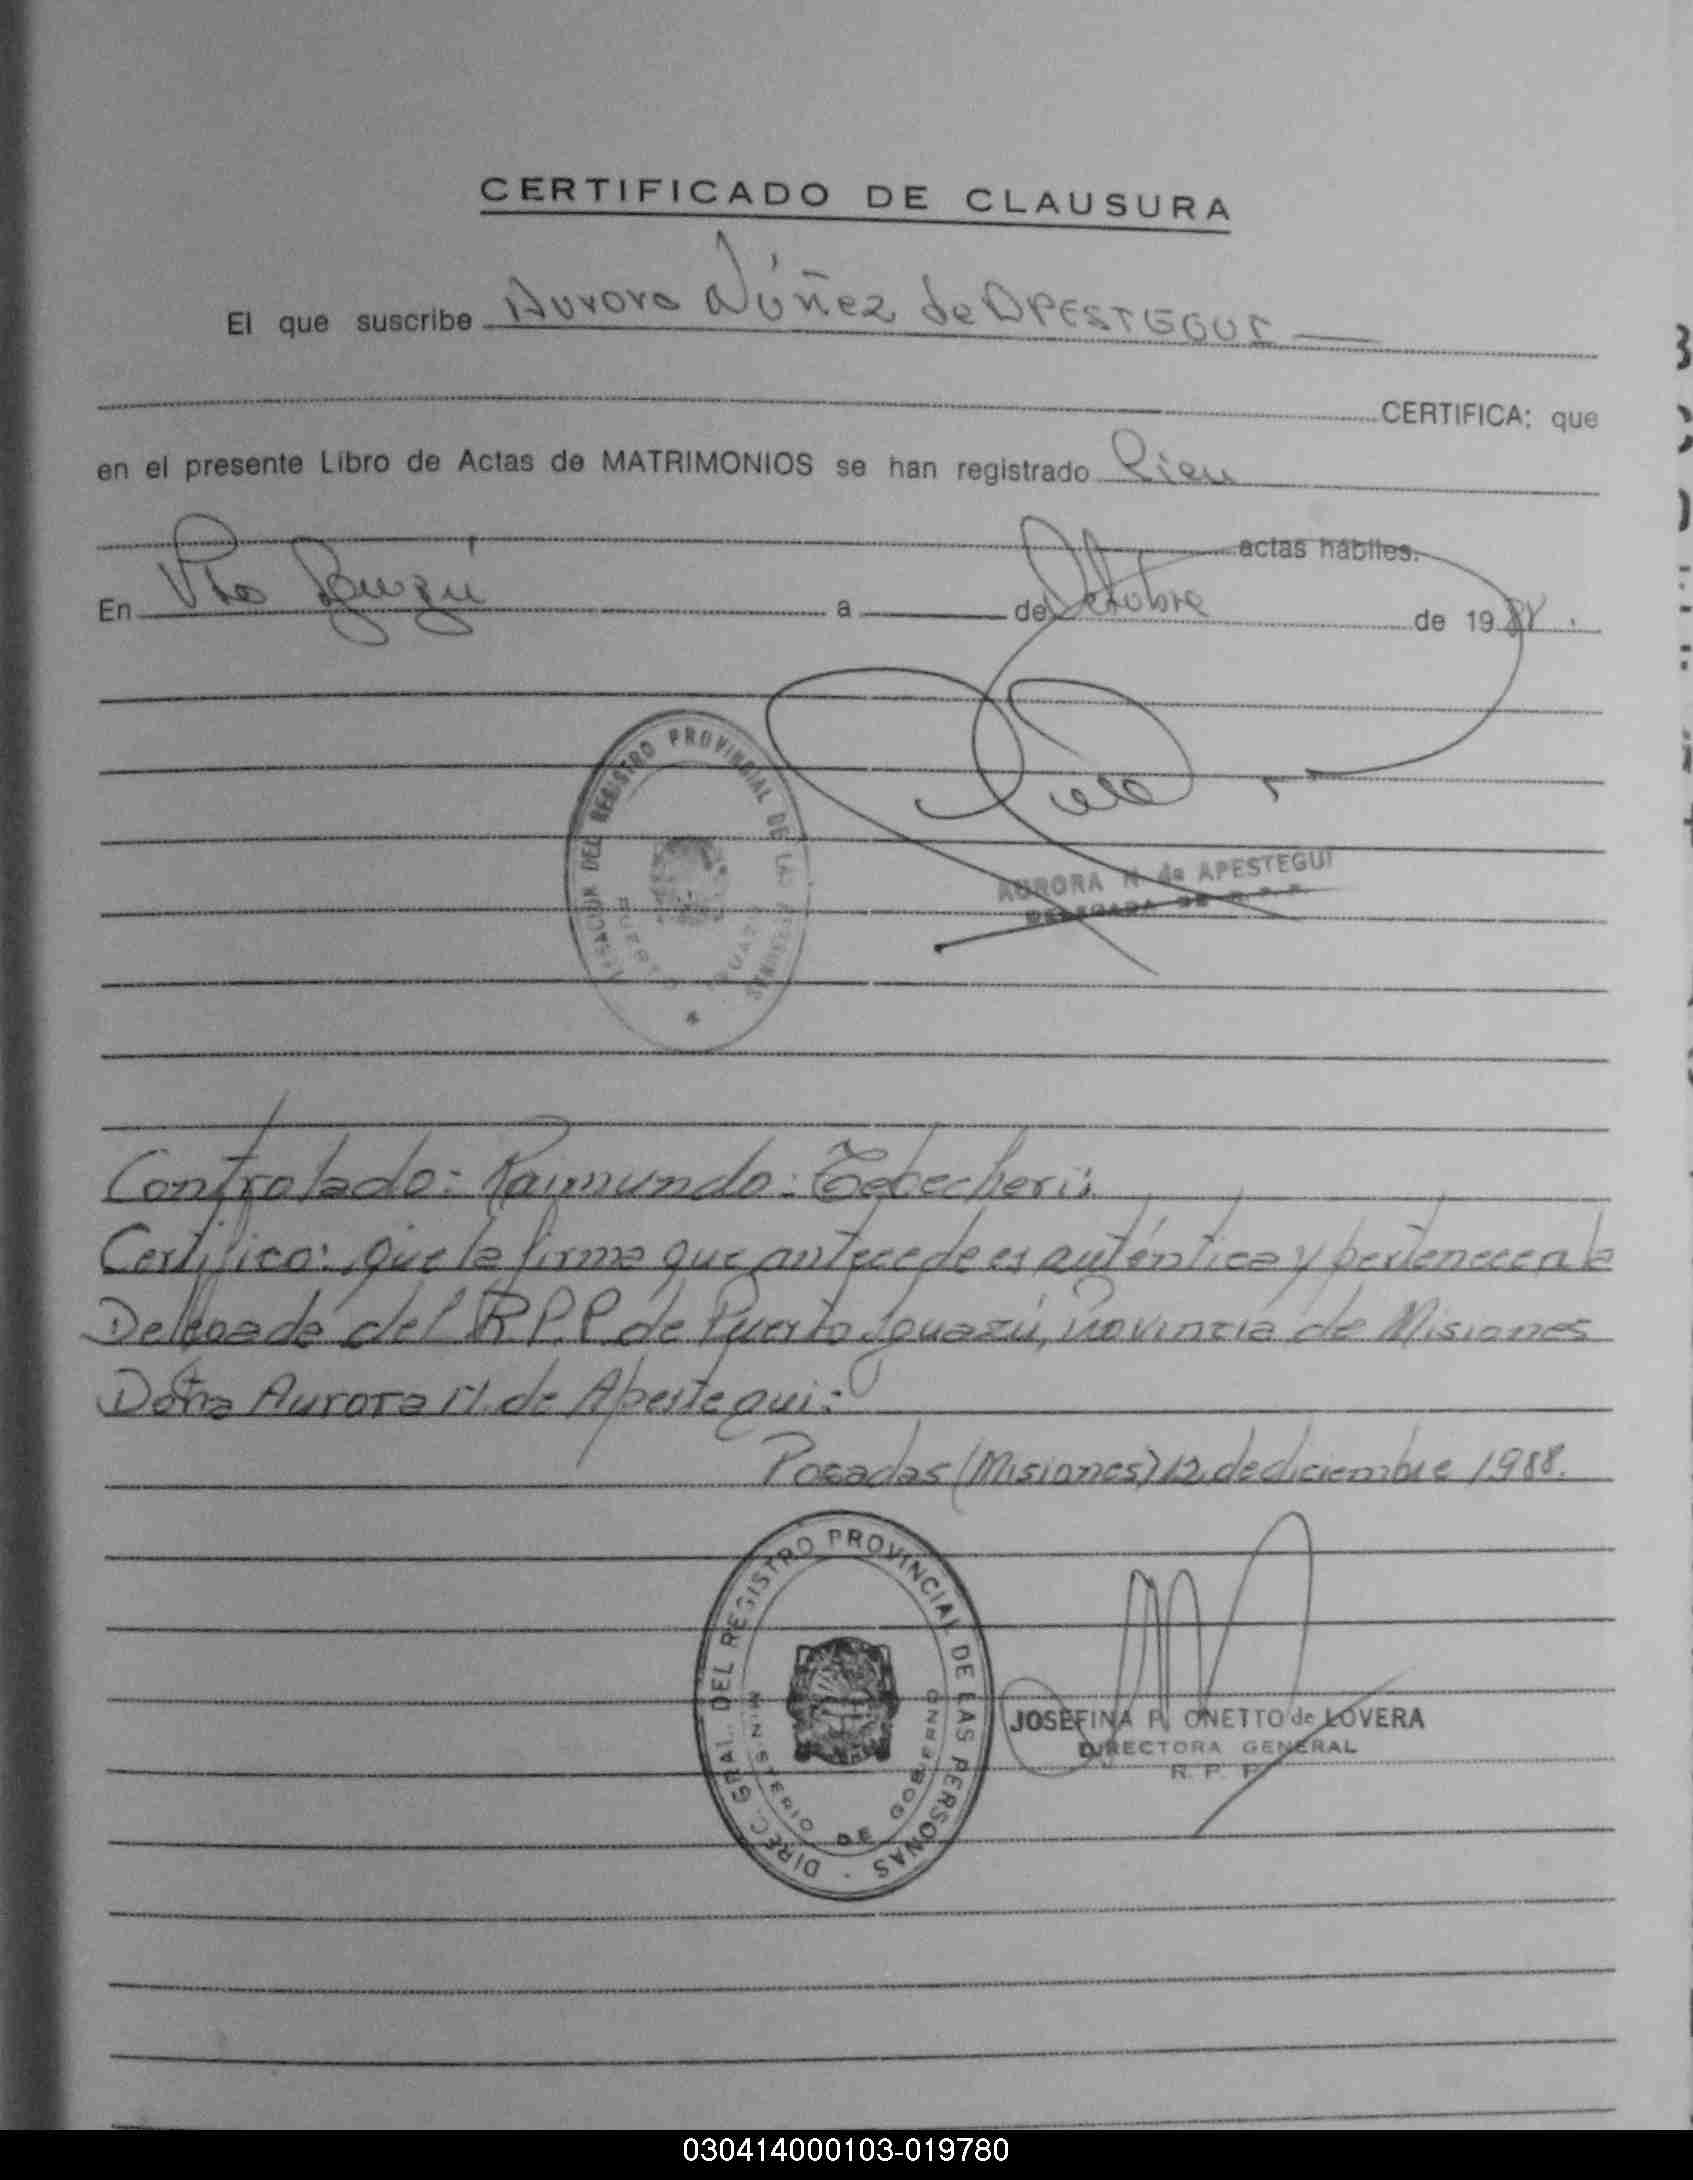 CERTIFICADO DE CLAUSURA
El que suscribe Aurora Núñez de APESTEGUI
CERTIFICA: que
en el presente Libro de Actas de MATRIMONIOS se han registrado Cien
actas hábiles.
En Pto Iguazú a de Octubre de 1988.
DEL REGISTRO PROVINCIAL DE LAS PERSONAS
PUERTO IGUAZU
AURORA N. de APESTEGUI
DELEGADA DE R.P.P.
Controlado: Raimundo:
Certifico: que la firma que antecede es auténtica y pertenece a la
Delegada del R.P.P. de Puerto Iguazú, Provincia de Misiones
Doña Aurora N. de Apestegui:
Posadas (Misiones) 12 de diciembre 1988.
DIREC. GRAL. DEL REGISTRO PROVINCIAL DE LAS PERSONAS
MINISTERIO DE GOBIERNO
JOSEFINA P. ONETTO de LOVERA
DIRECTORA GENERAL
R. P. P.
030414000103-019780